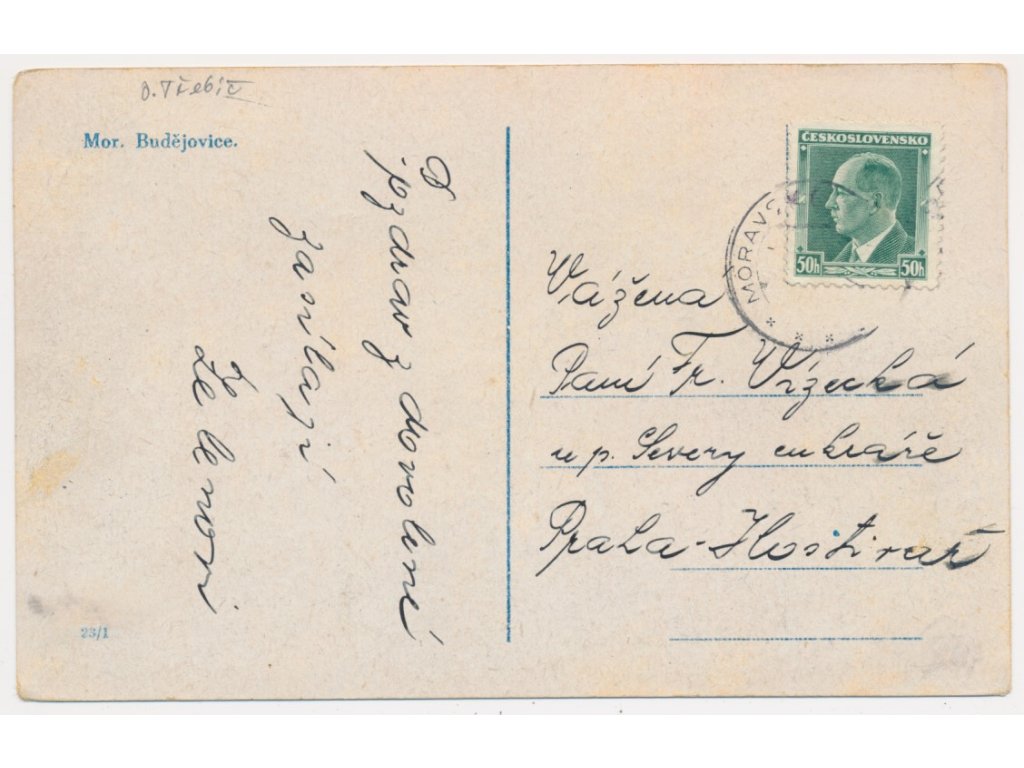 o. Třebíč
Mor. Budějovice.
pozdrav z dovolené
zasílají
Zelenovi
23/1
ČESKOSLOVENSKO
50h 50h
MORAVSK
Vážená
Paní Fr. Vrzecká
u p. Severy cukráře
Praha-Hostivař